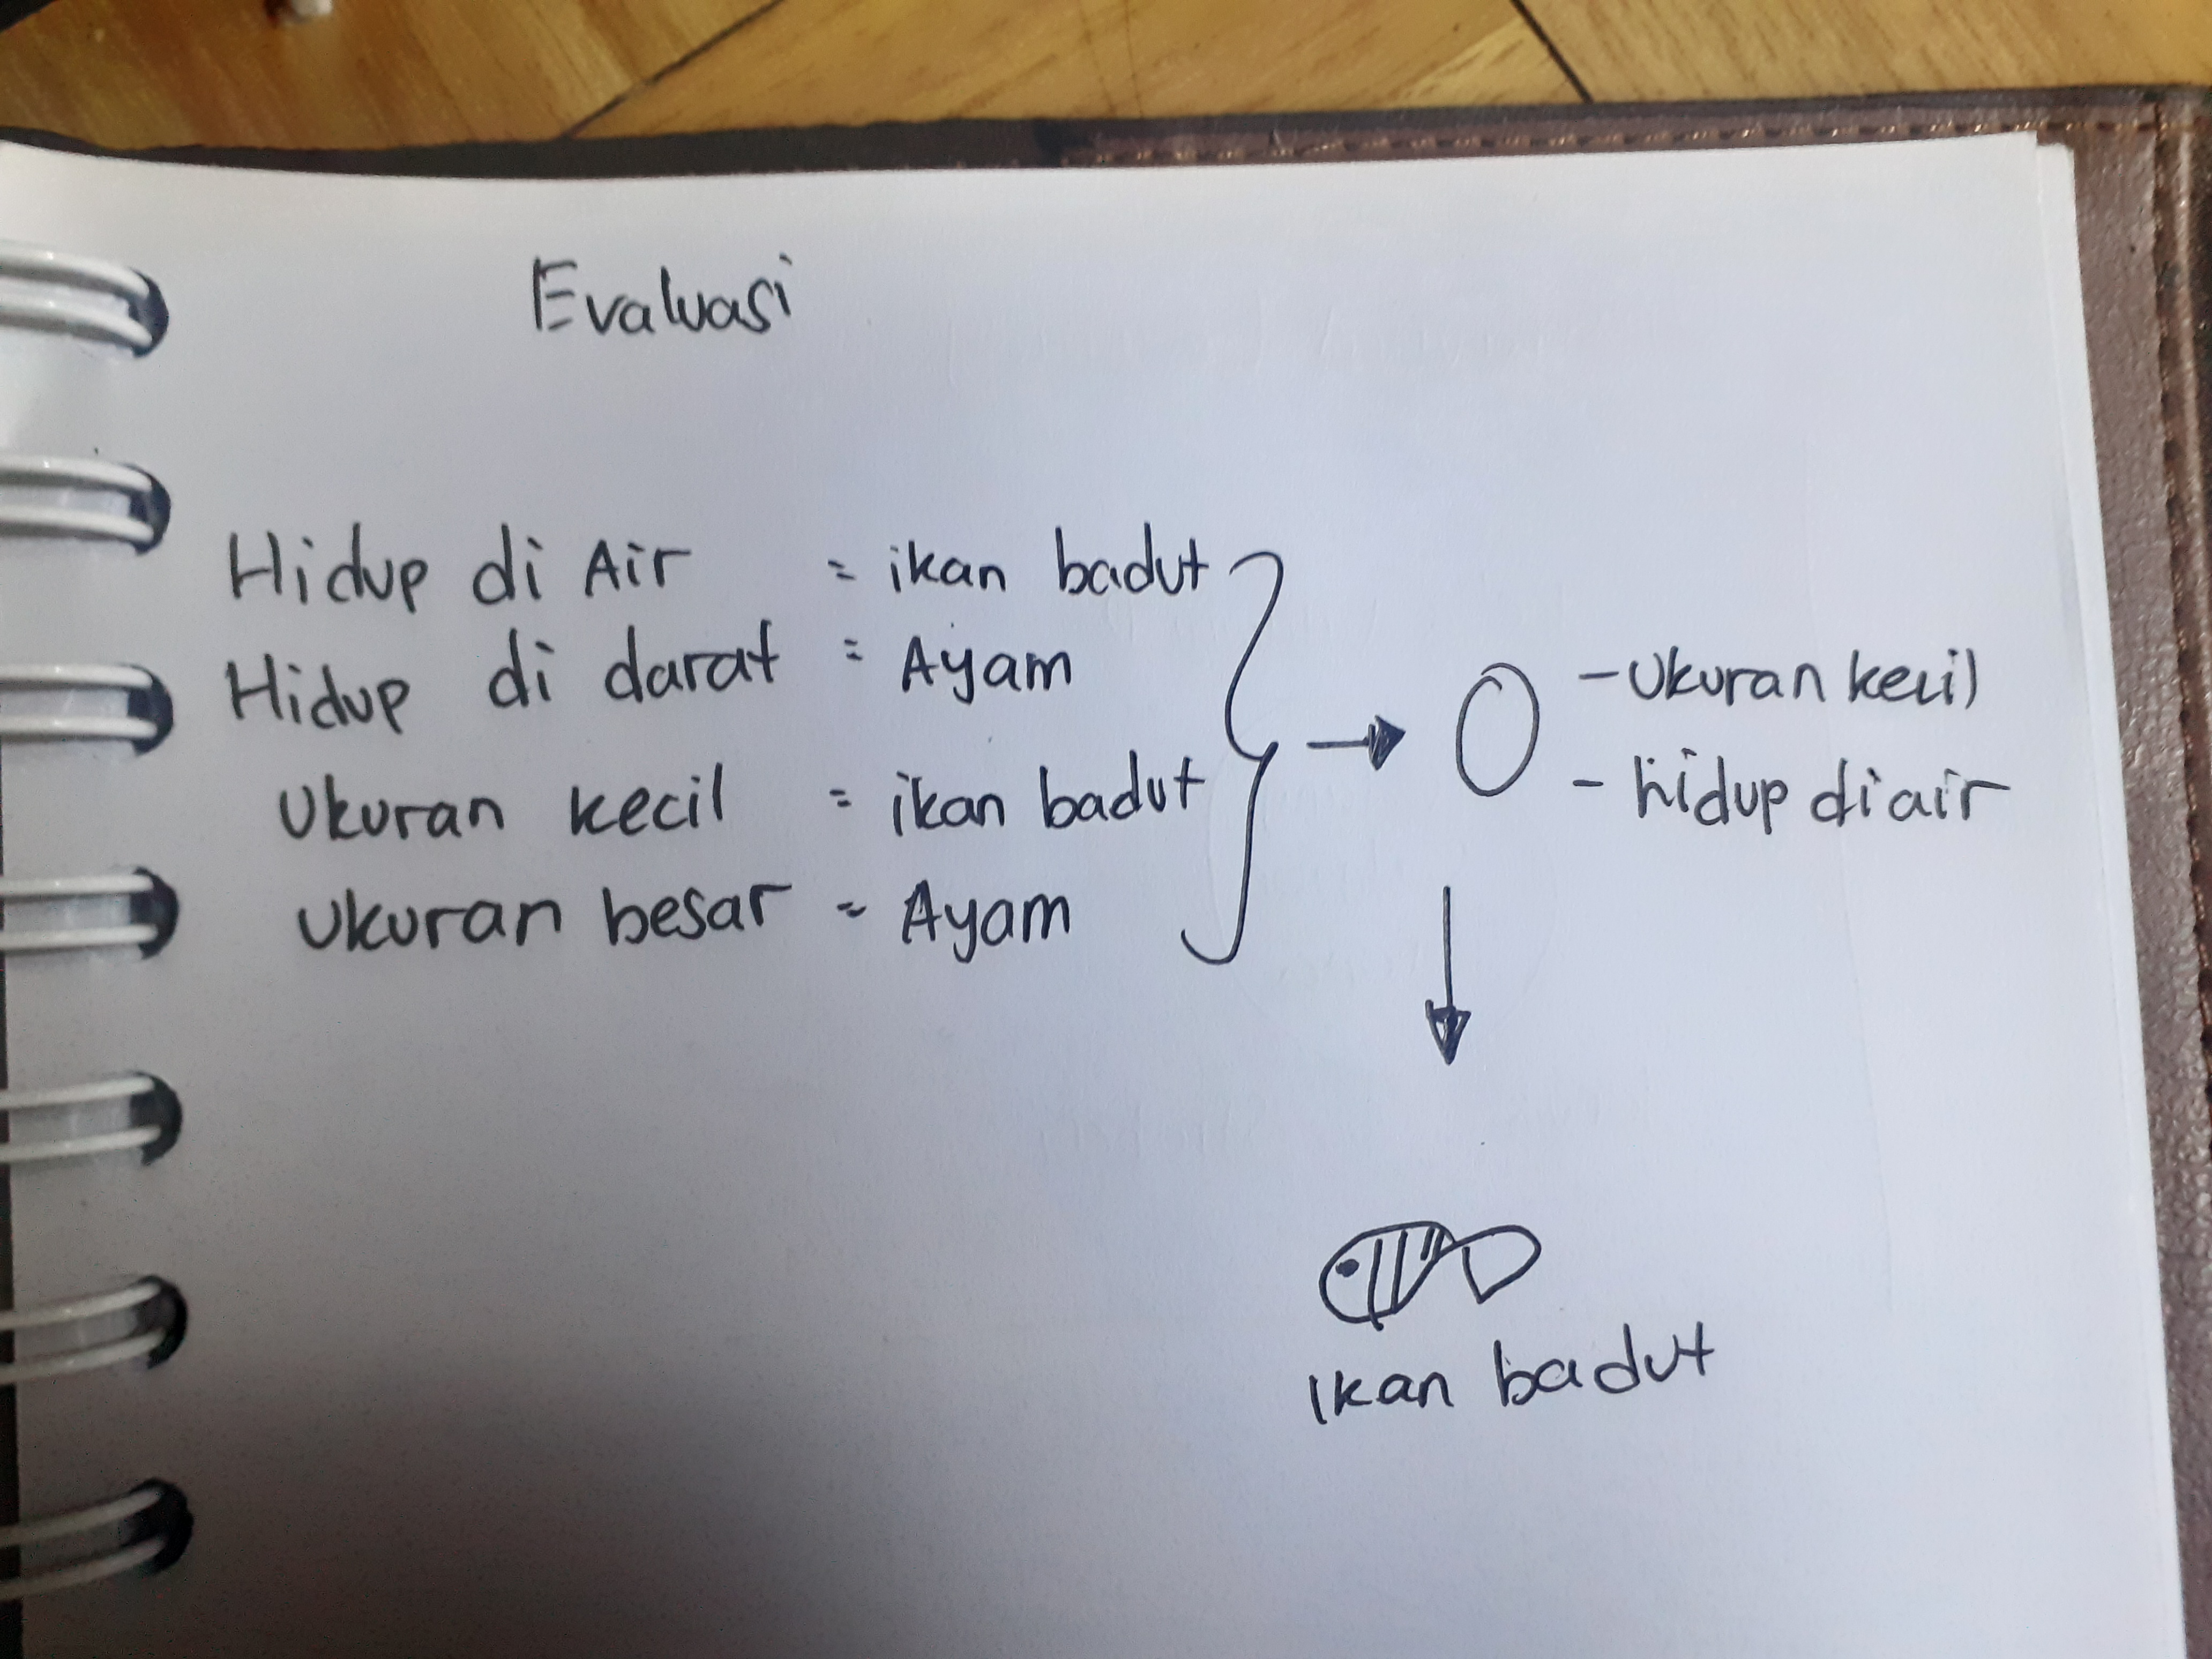 Evaluasi
Hidup di Air = ikan badut
Hidup di darat = Ayam
Ukuran kecil = ikan badut
Ukuran besar = Ayam
- Ukuran kecil
- hidup di air
Ikan badut